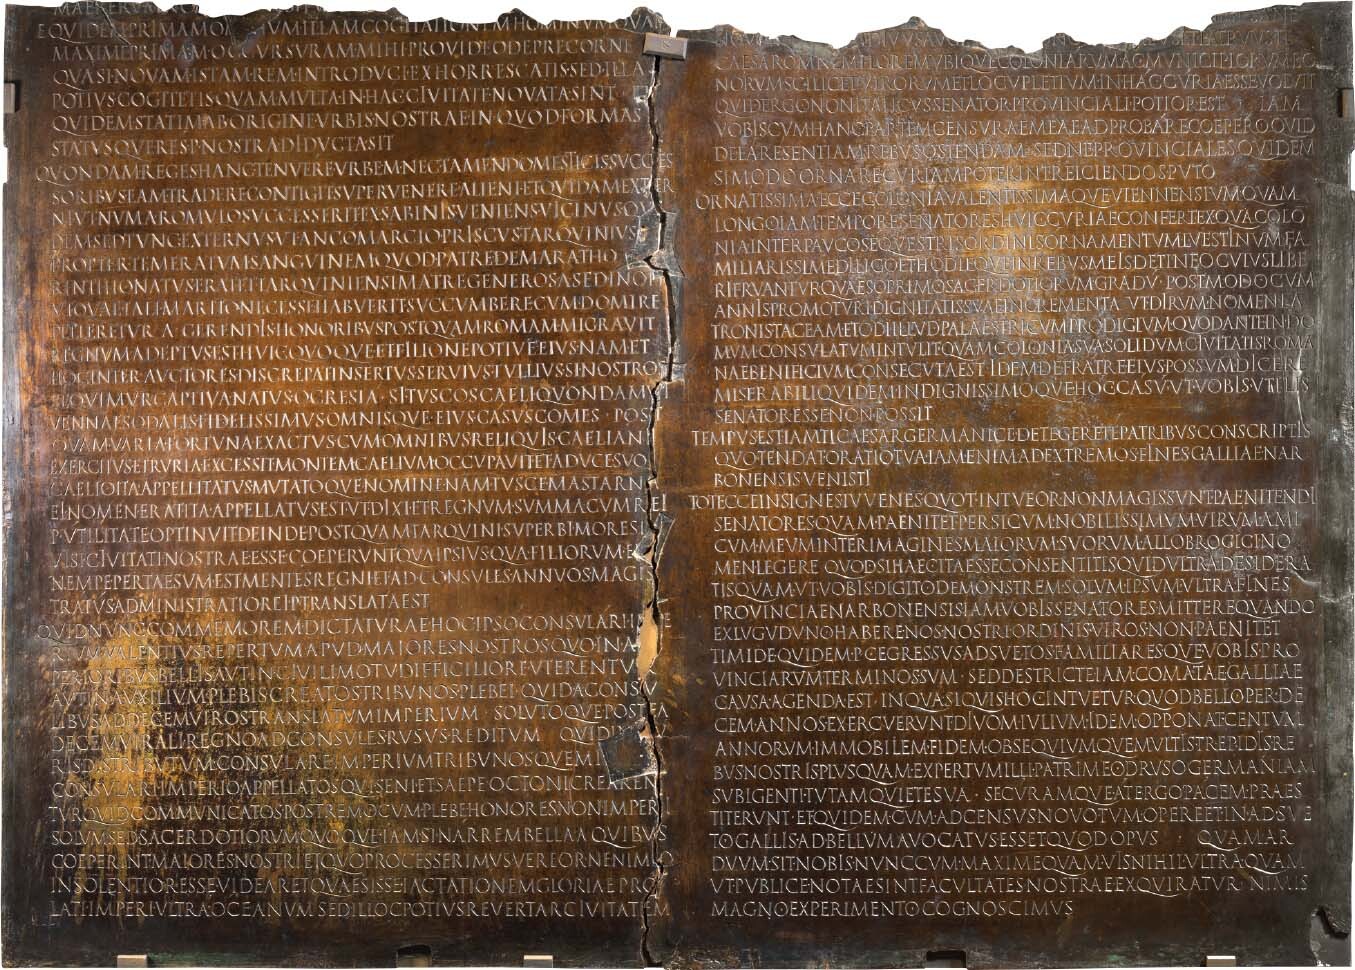 MAE RERVM
EQVIDEM PRIMAM OMNIVM ILLAM COGITATIONEM HOMINVM QVAM
MAXIME PRIMAM OCCVRSVRAM MIHI PROVIDEO DEPRECOR NE
QVASI NOVAM ISTAM REM INTRODVCI EXHORRESCATIS SED ILLA
POTIVS COGITETIS QVAM MVLTA IN HAC CIVITATE NOVATA SINT ET
QVIDEM STATIM AB ORIGINE VRBIS NOSTRAE IN QVOD FORMAS
STATVSQVE RES P NOSTRA DIDVCTA SIT
QVONDAM REGES HANC TENVERE VRBEM NEC TAMEN DOMESTICIS SVCCES
SORIBVS EAM TRADERE CONTIGIT SVPERVENERE ALIENI ET QVIDAM EXTER
NI VT NVMA ROMVLO SVCCESSERIT EX SABINIS VENIENS VICINVS QVI
DEM SED TVNC EXTERNVS VT ANCO MARCIO PRISCVS TARQVINIVS
PROPTER TEMERATVM SANGVINEM QVOD PATRE DEMARATHO
RINTHIO NATVS ERAT ET TARQVINIENSI MATRE GENEROSA SED INOPI
VT QVAE TALI MARITO NECESSE HABVERIT SVCCVMBERE CVM DOMI RE
PELLERETVR A GERENDIS HONORIBVS POSTQVAM ROMAM MIGRAVIT
REGNVM ADEPTVS EST HVIC QVOQVE ET FILIO NEPOTIVE EIVS NAM ET
HOC INTER AVCTORES DISCREPAT INSERTVS SERVIVS TVLLIVS SI NOSTROS
SEQVIMVR CAPTIVA NATVS OCRESIA SI TVSCOS CAELI QVONDAM VI
VENNAE SODALIS FIDELISSIMVS OMNISQVE EIVS CASVS COMES POST
QVAM VARIA FORTVNA EXACTVS CVM OMNIBVS RELIQVIS CAELIANI
EXERCITVS ETRVRIA EXCESSIT MONTEM CAELIVM OCCVPAVIT ET A DVCE SVO
CAELIO ITA APPELLITATVS MVTATOQVE NOMINE NAM TVSCE MASTARNA
EI NOMEN ERAT ITA APPELLATVS EST VT DIXI ET REGNVM SVMMA CVM REI
P VTILITATE OPTINVIT DEINDE POSTQVAM TARQVINI SVPERBI MORES IN
VISI CIVITATI NOSTRAE ESSE COEPERVNT QVA IPSIVS QVA FILIORVM EIVS
NEMPE PERTAESVM EST MENTES REGNI ET AD CONSVLES ANNVOS MAGIS
TRATVS ADMINISTRATIO REI P TRANSLATA EST
QVID NVNC COMMEMOREM DICTATVRAE HOC IPSO CONSVLARI IMPE
RIVM VALENTIVS REPERTVM APVD MAIORES NOSTROS QVO IN AS
PERIORIBVS BELLIS AVT IN CIVILI MOTV DIFFICILIORE VTERENTVR
AVT IN AVXILIVM PLEBIS CREATOS TRIBVNOS PLEBEI QVID A CONSV
LIBVS AD DECEMVIROS TRANSLATVM IMPERIVM SOLVTOQVE POSTEA
DECEMVIRALI REGNO AD CONSVLES RVSVS REDITVM QVID IN
RIS DISTRIBVTVM CONSVLARE IMPERIVM TRIBVNOSQVE MIL
CONSVLARI IMPERIO APPELLATOS QVI SENI ET SAEPE OCTONI CREAREN
TVR QVID COMMVNICATOS POSTREMO CVM PLEBE HONORES NON IMPERI
SOLVM SED SACERDOTIORVM QVOQVE IAM SI NARREM BELLA A QVIBVS
COEPERINT MAIORES NOSTRI ET QVO PROCESSERIMVS VEREOR NE NIMIO
INSOLENTIOR ESSE VIDEAR ET QVAESISSE IACTATIONEM GLORIAE PRO
LATI IMPERI VLTRA OCEANVM SED ILLOC POTIVS REVERTAR CIVITATEM
CAESAR OMNEM FLOREM VBIQVE COLONIARVM AC MVNICIPIORVM BO
NORVM SCILICET VIRORVM ET LOCVPLETIVM IN HAC CVRIA ESSE VOLVIT
QVID ERGO NON ITALICVS SENATOR PROVINCIALI POTIOR EST IAM
VOBIS CVM HANC PARTEM CENSVRAE MEAE ADPROBARE COEPERO QVID
DE EA RE SENTIAM REBVS OSTENDAM SED NE PROVINCIALES QVIDEM
SI MODO ORNARE CVRIAM POTERINT REICIENDOS PVTO
ORNATISSIMA ECCE COLONIA VALENTISSIMAQVE VIENNENSIVM QVAM
LONGO IAM TEMPORE SENATORES HVIC CVRIAE CONFERT EX QVA COLO
NIA INTER PAVCOS EQVESTRIS ORDINIS ORNAMENTVM L VESTINVM FA
MILIARISSIME DILIGO ET HODIEQVE IN REBVS MEIS DETINEO CVIVS LIBE
RI FRVANTVR QVAESO PRIMO SACERDOTIORVM GRADV POST MODO CVM
ANNIS PROMOTVRI DIGNITATIS SVAE INCREMENTA VT DIRVM NOMEN LA
TRONIS TACEAM ET ODI ILLVD PALAESTRICVM PRODIGIVM QVOD ANTE IN DO
MVM CONSVLATVM INTVLIT QVAM COLONIA SVA SOLIDVM CIVITATIS ROMA
NAE BENIFICIVM CONSECVTA EST IDEM DE FRATRE EIVS POSSVM DICERE
MISERABILI QVIDEM INDIGNISSIMOQVE HOC CASV VT VOBIS VTILIS
SENATOR ESSE NON POSSIT
TEMPVS EST IAM TI CAESAR GERMANICE DETEGERE TE PATRIBVS CONSCRIPTIS
QVO TENDAT ORATIO TVA IAM ENIM AD EXTREMOS FINES GALLIAE NAR
BONENSIS VENISTI
TOT ECCE INSIGNES IVVENES QVOT INTVEOR NON MAGIS SVNT PAENITENDI
SENATORES QVAM PAENITET PERSICVM NOBILISSIMVM VIRVM AMI
CVM MEVM INTER IMAGINES MAIORVM SVORVM ALLOBROGICI NO
MEN LEGERE QVOD SI HAEC ITA ESSE CONSENTITIS QVID VLTRA DESIDERA
TIS QVAM VT VOBIS DIGITO DEMONSTREM SOLVM IPSVM VLTRA FINES
PROVINCIAE NARBONENSIS IAM VOBIS SENATORES MITTERE QVANDO
EX LVGVDVNO HABERE NOS NOSTRI ORDINIS VIROS NON PAENITET
TIMIDE QVIDEM P C EGRESSVS ADSVETOS FAMILIARESQVE VOBIS PRO
VINCIARVM TERMINOS SVM SED DESTRICTE IAM COMATAE GALLIAE
CAVSA AGENDA EST IN QVA SI QVIS HOC INTVETVR QVOD BELLO PER DE
CEM ANNOS EXERCVERVNT DIVOM IVLIVM IDEM OPPONAT CENTVM
ANNORVM IMMOBILEM FIDEM OBSEQVIVMQVE MVLTIS TREPIDIS RE
BVS NOSTRIS PLVS QVAM EXPERTVM ILLI PATRI MEO DRVSO GERMANIAM
SVBIGENTI TVTAM QVIETE SVA SECVRAMQVE A TERGO PACEM PRAES
TITERVNT ET QVIDEM CVM AD CENSVS NOVO TVM OPERE ET INADSVE
TO GALLIS AD BELLVM AVOCATVS ESSET QVOD OPVS QVAM AR
DVVM SIT NOBIS NVNC CVM MAXIME QVAMVIS NIHIL VLTRA QVAM
VT PVBLICE NOTAE SINT FACVLTATES NOSTRAE EXQVIRATVR NIMIS
MAGNO EXPERIMENTO COGNOSCIMVS